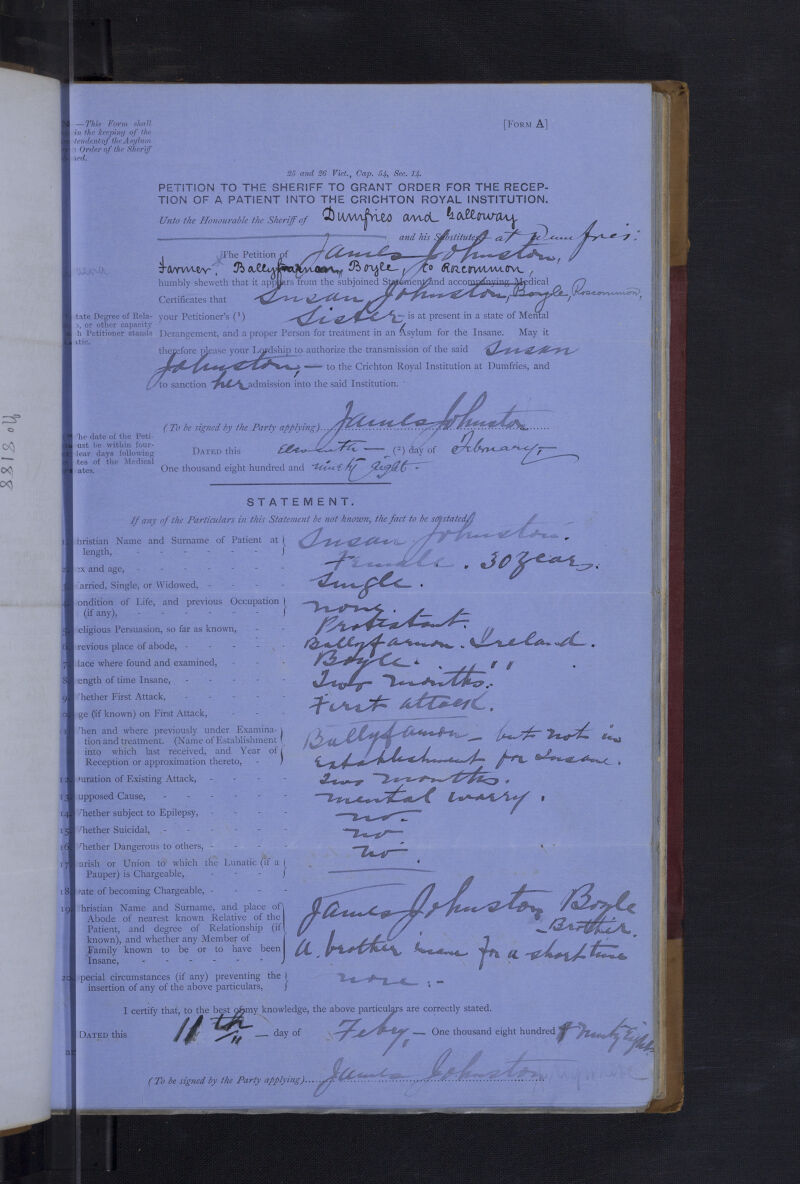 —This Form shall
in the keeping of the
tendent of the Asylum
Order of the Sheriff
[FORM A]
25 and 26 Vict., Cap. 54, Sec. 14.
PETITION TO THE SHERIFF TO GRANT ORDER FOR THE RECEP-
TION OF A PATIENT INTO THE CRICHTON ROYAL INSTITUTION.
Unto the Honourable the Sheriff of Dumfries and Galloway
and his Substitutes at Dumfries.
The Petition of James Johnston,
Farmer, Ballyfarnan, Boyle, Co Roscommon,
humbly sheweth that it appears from the subjoined Statement and accompanying Medical
Certificates that Susan Johnston, Boyle, Roscommon,
your Petitioner's (¹) Sister, is at present in a state of Mental
Derangement, and a proper Person for treatment in an Asylum for the Insane. May it
therefore please your Lordship to authorize the transmission of the said Susan
Johnston, — to the Crichton Royal Institution at Dumfries, and
to sanction her admission into the said Institution.
tate Degree of Rela-
, or other capacity
h Petitioner stands
atic.
(To be signed by the Party applying) James Johnston
DATED this Eleventh — (²) day of February, —
One thousand eight hundred and ninety eight.
he date of the Peti-
ust be within four-
lear days following
tes of the Medical
ates.
8818 04
STATEMENT.
If any of the Particulars in this Statement be not known, the fact to be so stated.
1. hristian Name and Surname of Patient at length, Susan Johnston.
2. ex and age, Female. 30 years.
3. arried, Single, or Widowed, Single.
4. ondition of Life, and previous Occupation (if any), none.
5. eligious Persuasion, so far as known, Protestant.
6. revious place of abode, Ballyfarnon. Ireland.
7. lace where found and examined, Boyle. "
8. ength of time Insane, Two months.
9. hether First Attack, First attack.
10. ge (if known) on First Attack,
11. hen and where previously under Examina-
tion and treatment. (Name of Establishment
into which last received, and Year of
Reception or approximation thereto,
Ballyfarnon — but not in
Establishment for Insane.
12. uration of Existing Attack, Two months.
13. upposed Cause, mental worry.
14. hether subject to Epilepsy, no.
15. hether Suicidal, no
16. hether Dangerous to others, no.
17. arish or Union to which the Lunatic (if a
Pauper) is Chargeable,
18. ate of becoming Chargeable,
19. hristian Name and Surname, and place of
Abode of nearest known Relative of the
Patient, and degree of Relationship (if
known), and whether any Member of
Family known to be or to have been
Insane,
James Johnston, Boyle
— Brother.
A. brother insane for a short time
20. pecial circumstances (if any) preventing the
insertion of any of the above particulars,
none. —
I certify that, to the best of my knowledge, the above particulars are correctly stated.
DATED this 11th — day of Febry, — One thousand eight hundred & Ninety Eight
(To be signed by the Party applying) James Johnston